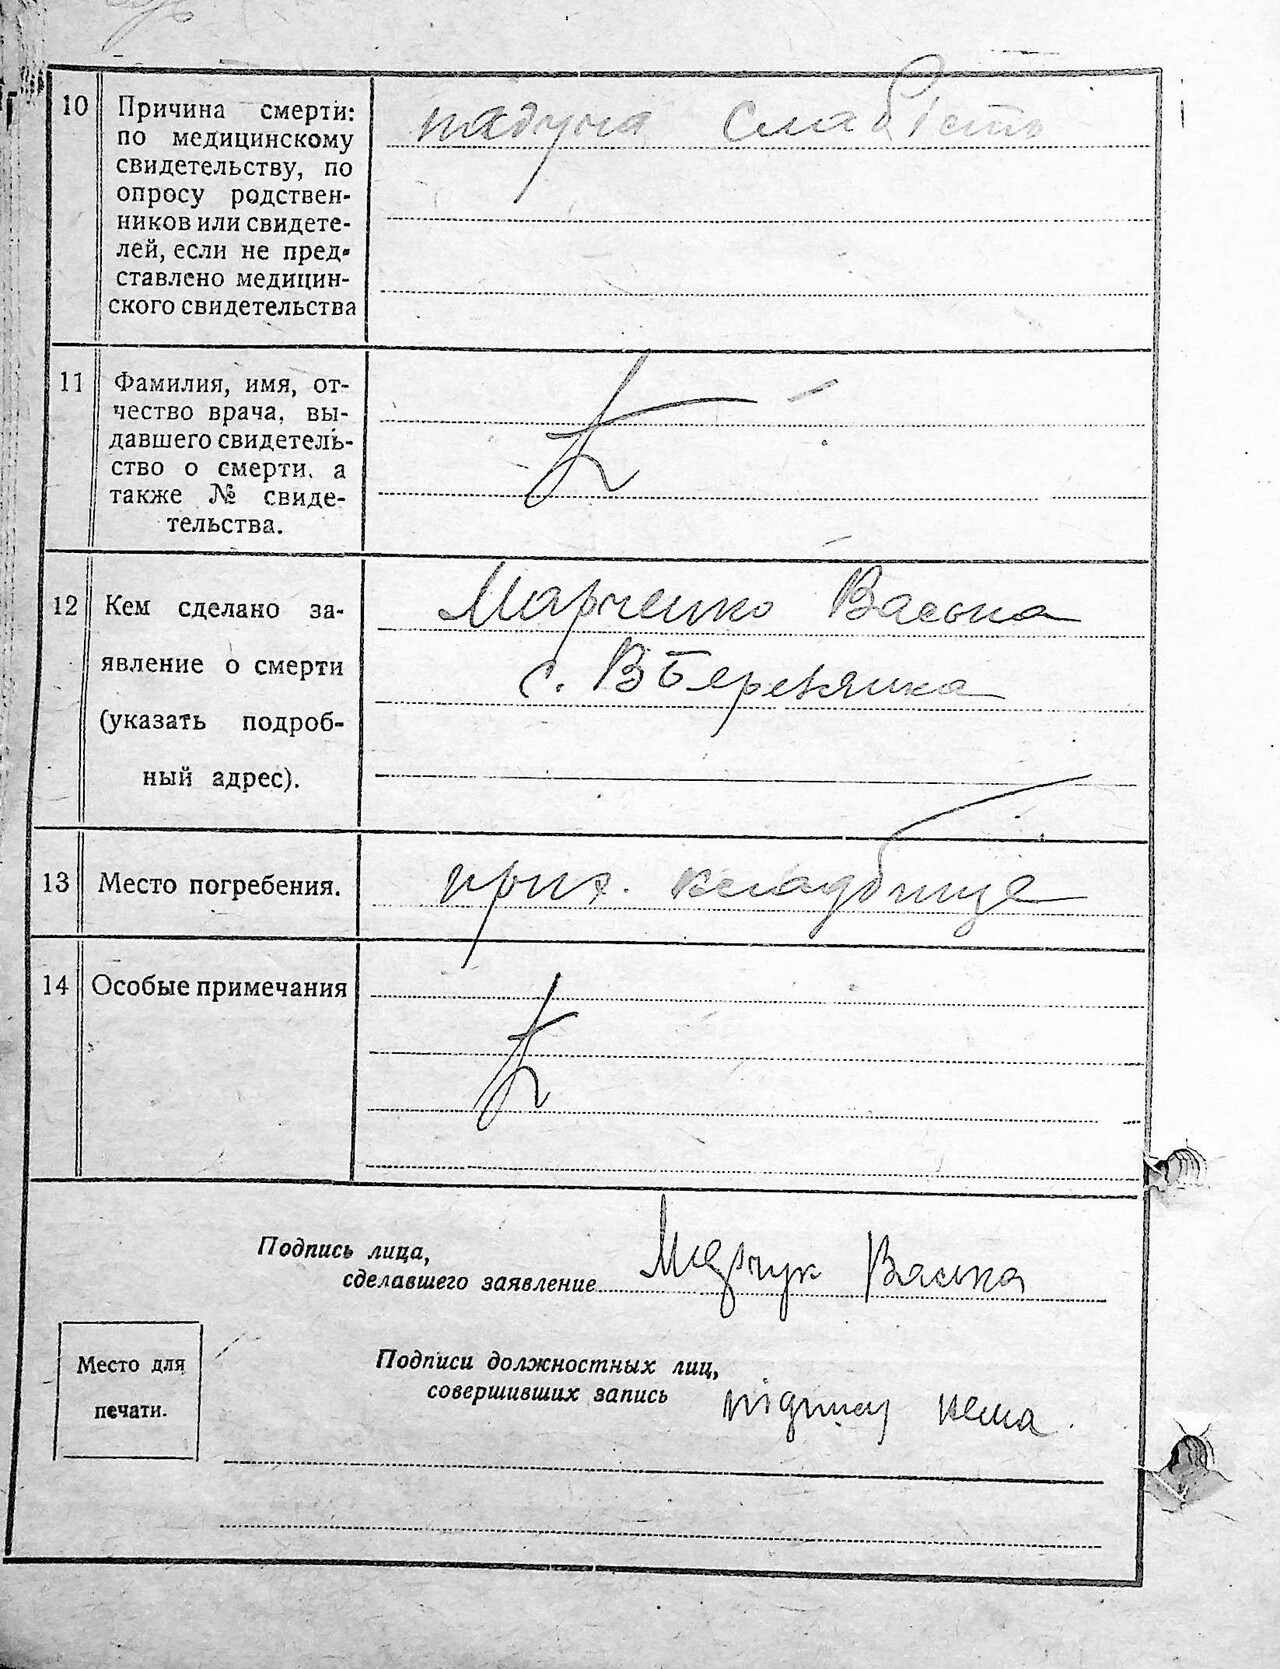 10 Причина смерти: падуча слабість
по медицинскому
свидетельству, по
опросу родствен-
ников или свидете-
лей, если не пред-
ставлено медицин-
ского свидетельства
11 Фамилия, имя, от-
чество врача, вы-
давшего свидетель-
ство о смерти, а
также № свиде-
тельства.
12 Кем сделано за- Марченко Васька
явление о смерти с. В Березянка
(указать подроб-
ный адрес).
13 Место погребения. прих. кладбище
14 Особые примечания
Подпись лица,
сделавшего заявление Марчук Васька
Место для
печати.
Подписи должностных лиц,
совершивших запись підпису нема.